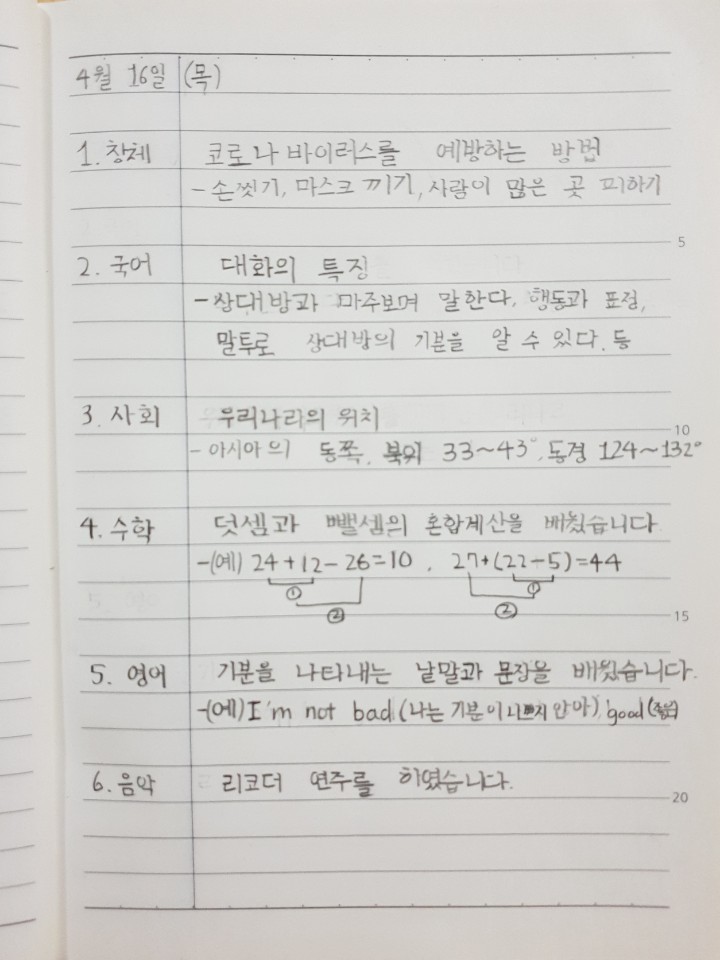 4월 16일 (목)
1. 창체 코로나 바이러스를 예방하는 방법
- 손씻기, 마스크 끼기, 사람이 많은 곳 피하기
5
2. 국어 대화의 특징
- 상대방과 마주보며 말한다. 행동과 표정,
말투로 상대방의 기분을 알 수 있다. 등
3. 사회 우리나라의 위치
10
- 아시아의 동쪽, 북위 33~43°, 동경 124~132°
4. 수학 덧셈과 뺄셈의 혼합계산을 배웠습니다
-(예) 24+12-26=10, 27+(22-5)=44
① ①
② ②
15
5. 영어 기분을 나타내는 낱말과 문장을 배웠습니다.
-(예) I'm not bad (나는 기분이 나쁘지 안아), good (좋음)
6. 음악 리코더 연주를 하였습니다.
20